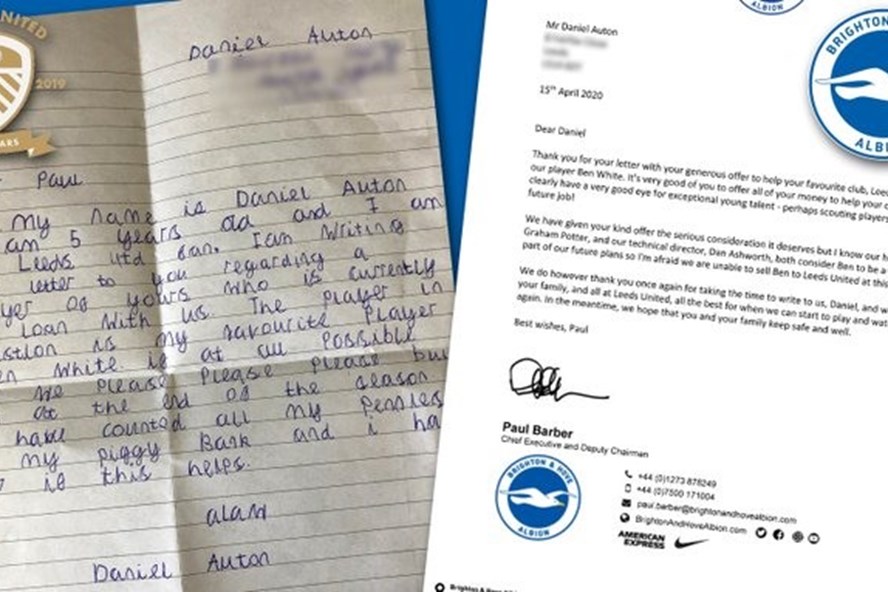 UNITED
2019
ARS
Daniel Auton
Paul
My name is Daniel Auton
am 5 years old and I am
Leeds utd fan. I am writing
letter to you regarding a
yer of yours who is currently
Loan with us. The Player in
estion is my favourite Player
en White. if at all Possible
we Please Please Please bu
at the end of the season
have counted all my Pennies
my piggy Bank and i ha
if this helps.
Daniel Auton
ALBION
Mr Daniel Auton
15th April 2020
Dear Daniel
Thank you for your letter with your generous offer to help your favourite club, Lee
our player Ben White. It's very good of you to offer all of your money to help your
clearly have a very good eye for exceptional young talent - perhaps scouting player
future job!
We have given your kind offer the serious consideration it deserves but I know our h
Graham Potter, and our technical director, Dan Ashworth, both consider Ben to be a
part of our future plans so I'm afraid we are unable to sell Ben to Leeds United at thi
We do however thank you once again for taking the time to write to us, Daniel, and w
your family, and all at Leeds United, all the best for when we can start to play and wat
again. In the meantime, we hope that you and your family keep safe and well.
Best wishes, Paul
Paul Barber
Chief Executive and Deputy Chairman
BRIGHTON & HOVE
ALBION
+44 (0)1273 878249
+44 (0)7500 171004
paul.barber@brightonandhovealbion.com
BrightonAndHoveAlbion.com
AMERICAN
EXPRESS
Brighton & H
BRIGHTON
ALBI